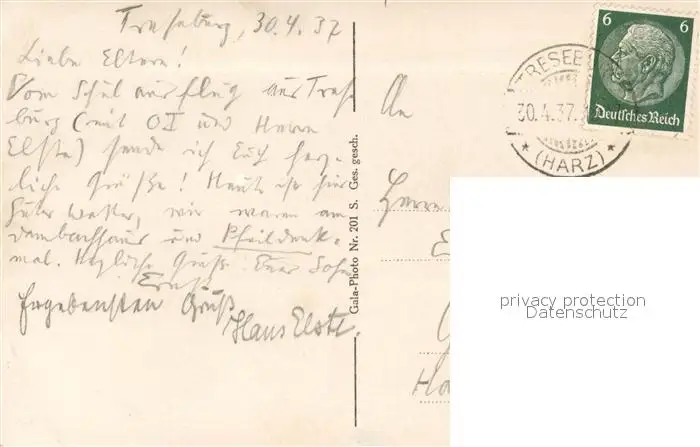 Treseburg, 30.4.37
Liebe Eltern!
Vom Schulausflug aus Trese
burg (mit OI und Herrn
Elste) sende ich Euch herz-
liche Grüße! Heute ist hier
gutes Wetter, wir waren am
Dambachhaus und Pfeildenk-
mal. Herzliche Grüße Euer Sohn
Ernst
Ergebensten Gruß
Hans Elste.
Gala-Photo Nr. 201 S. Ges. gesch.
An
Herrn
6 6
Deutsches Reich
TRESEB
30.4.37.
* (HARZ) *
privacy protection
Datenschutz